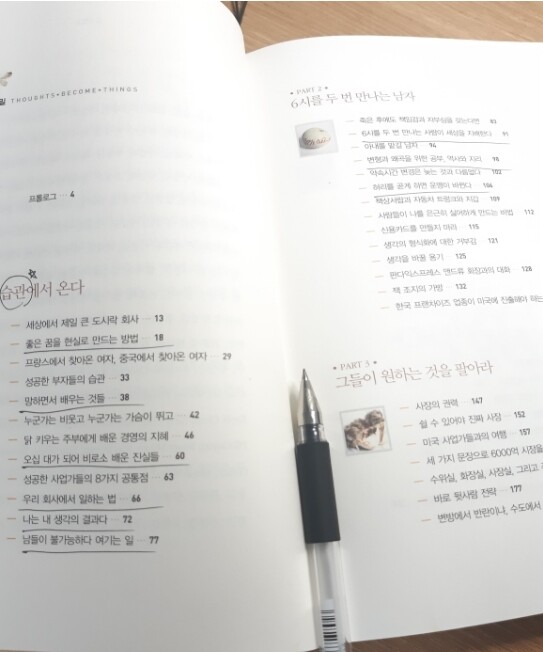 밀 THOUGHTS•BECOME•THINGS
프롤로그 ··· 4
습관에서 온다
— 세상에서 제일 큰 도시락 회사 ··· 13
— 좋은 꿈을 현실로 만드는 방법 ··· 18
— 프랑스에서 찾아온 여자, 중국에서 찾아온 여자 ··· 29
— 성공한 부자들의 습관 ··· 33
— 망하면서 배우는 것들 ··· 38
— 누군가는 비웃고 누군가는 가슴이 뛰고 ··· 42
— 닭 키우는 주부에게 배운 경영의 지혜 ··· 46
— 오십 대가 되어 비로소 배운 진실들 ··· 60
— 성공한 사업가들의 8가지 공통점 ··· 63
— 우리 회사에서 일하는 법 ··· 66
— 나는 내 생각의 결과다 ··· 72
— 남들이 불가능하다 여기는 일 ··· 77
• PART 2 •
6시를 두 번 만나는 남자
— 죽은 후에도 책임감과 자부심을 갖는다면 83
— 6시를 두 번 만나는 사람이 세상을 지배한다 91
— 아내를 맡길 남자 ··· 94
— 변형과 왜곡을 위한 공부, 역사와 지리 ··· 98
— 약속시간 변경은 늦는 것과 다름없다 ··· 102
— 허리를 곧게 하면 운명이 바뀐다 ··· 106
— 책상서랍과 자동차 트렁크와 지갑 ··· 109
— 사람들이 나를 은근히 싫어하게 만드는 비법 ··· 112
— 신용카드를 만들지 마라 ··· 115
— 생각의 형식화에 대한 거부감 ··· 121
— 생각을 바꿀 용기 ··· 125
— 판다익스프레스 앤드류 회장과의 대화 ··· 128
— 잭 조지의 가방 ··· 132
— 한국 프랜차이즈 업종이 미국에 진출해야 하는
• PART 3 •
그들이 원하는 것을 팔아라
— 사장의 권력 ··· 147
— 쉴 수 있어야 진짜 사장 ··· 152
— 미국 사업가들과의 여행 ··· 157
— 세 가지 문장으로 6000억 시장을
— 수위실, 화장실, 사장실, 그리고
— 바로 뒷사람 전략 ··· 177
— 변방에서 반란이나, 수도에서